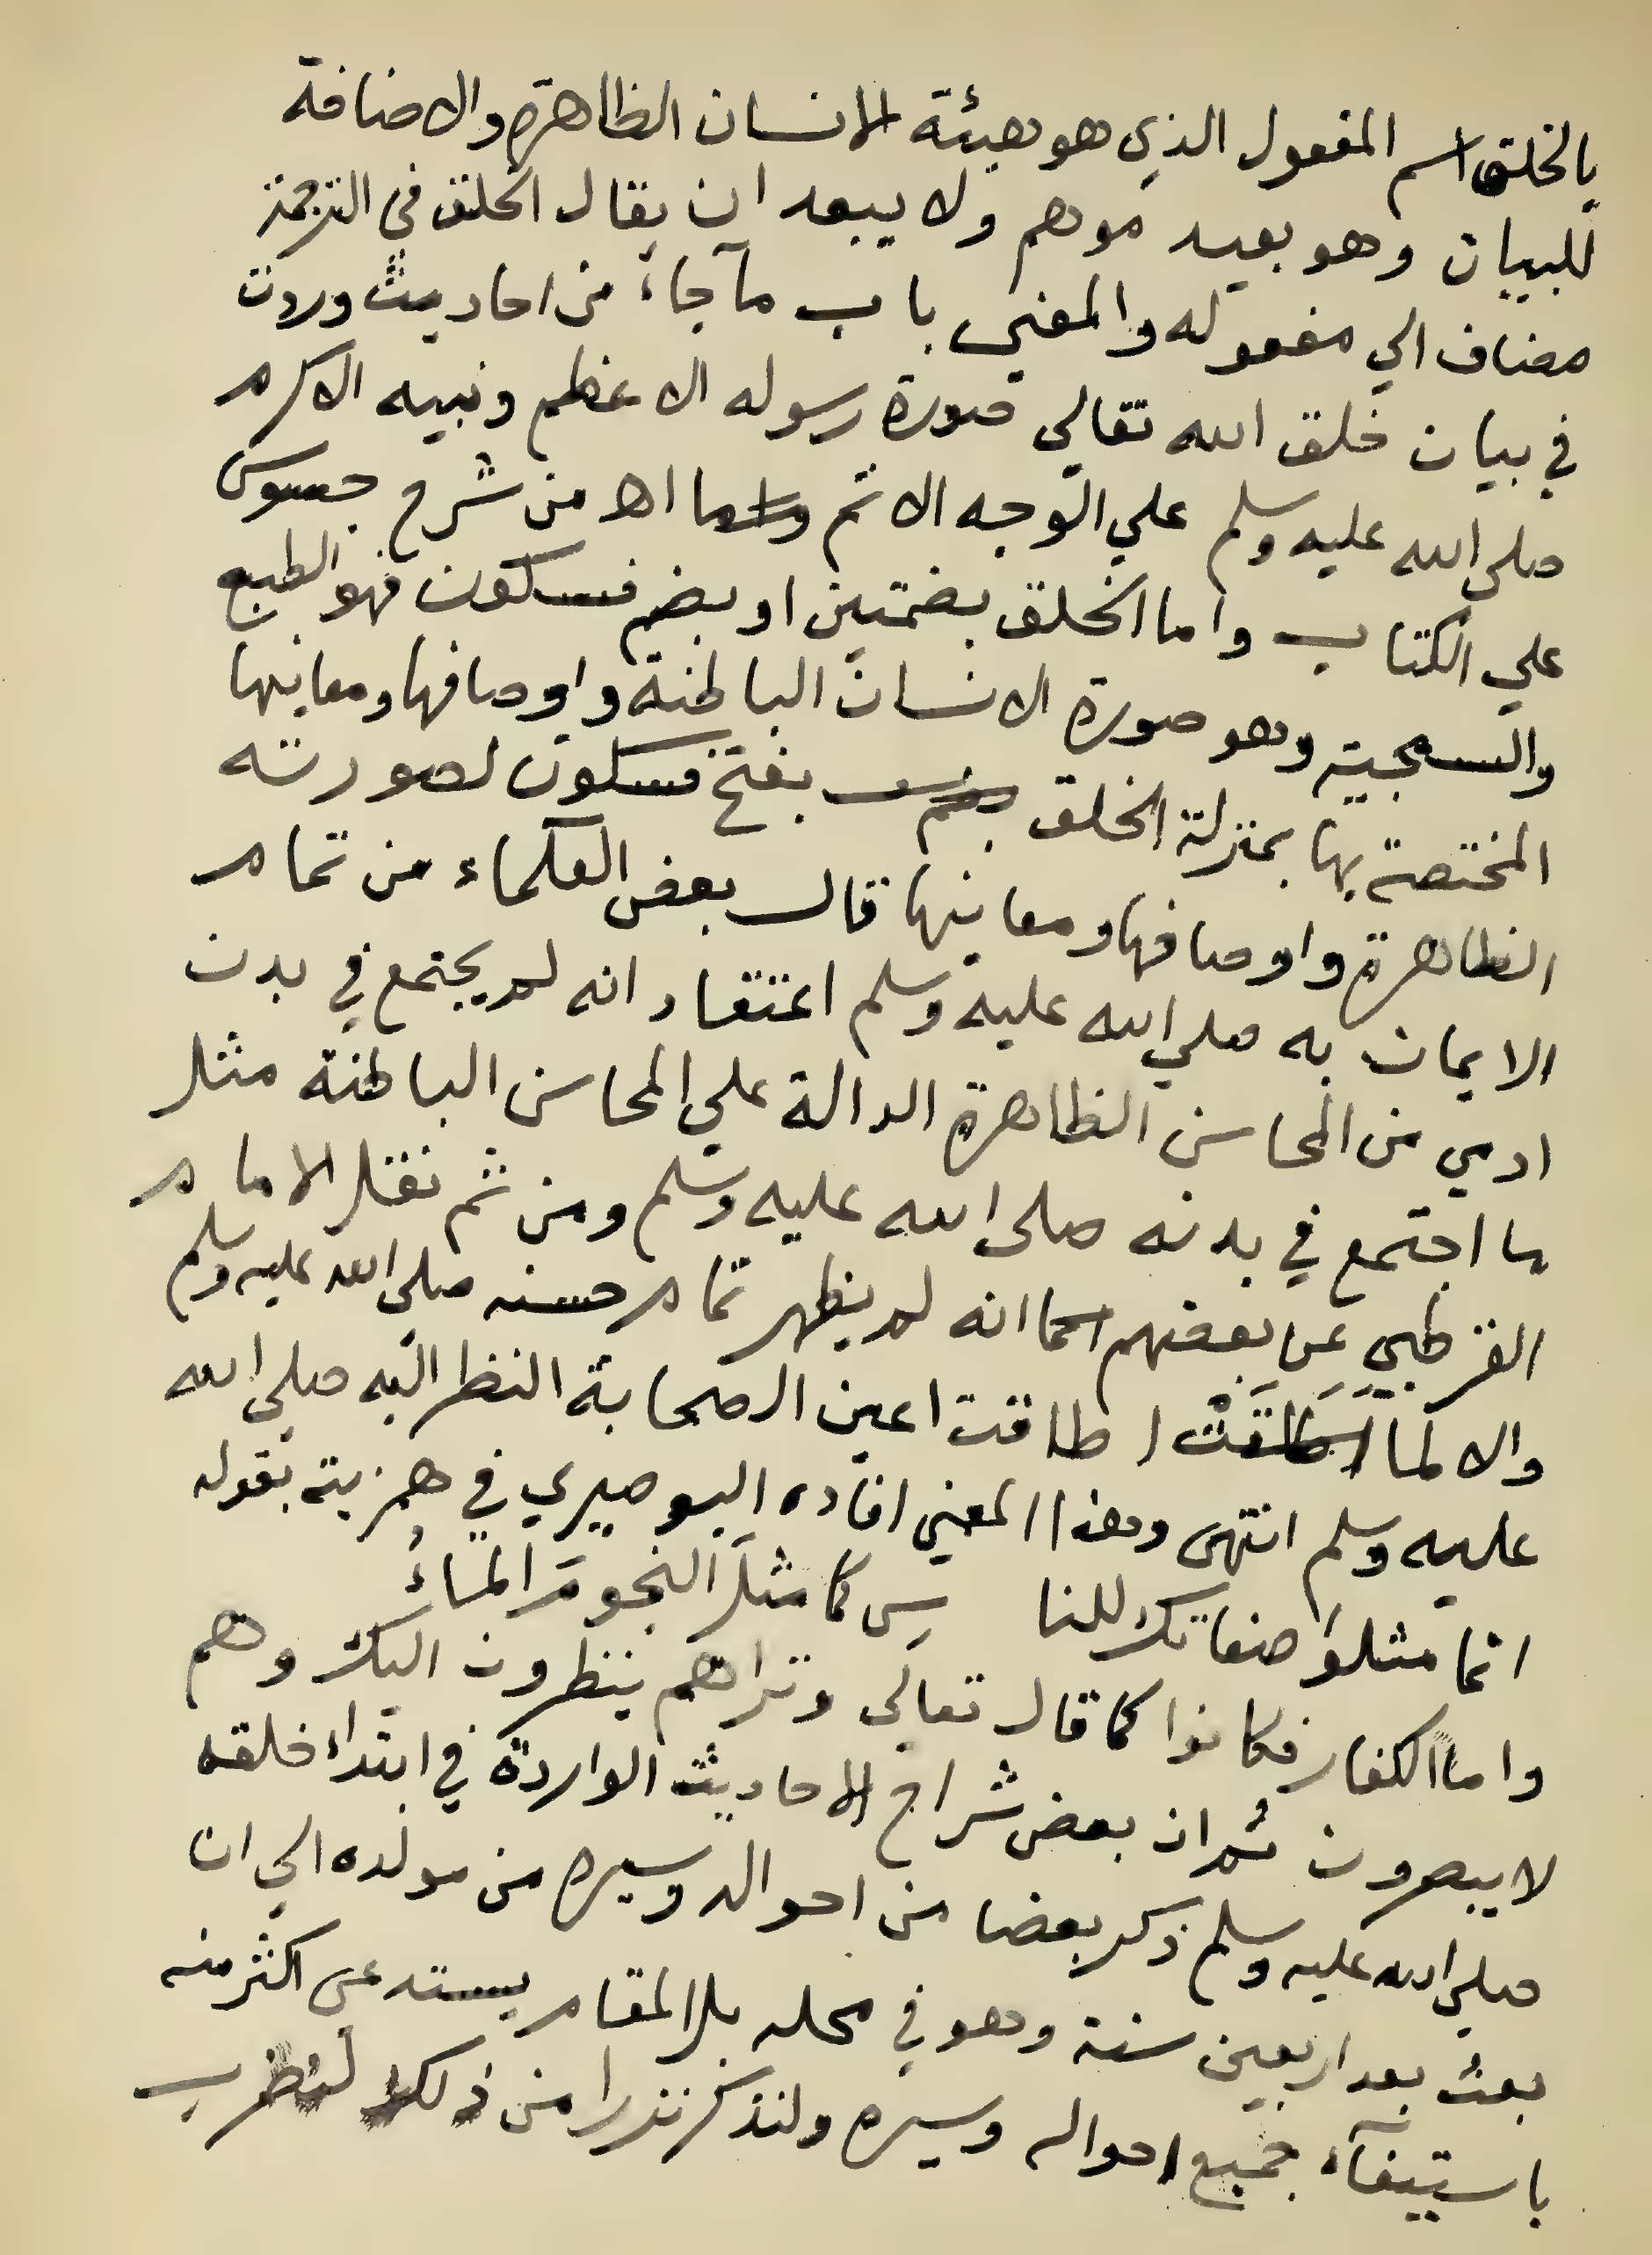 بالخلق اسم المفعول الذي هو هيئة الانسان الظاهرة والاضافة
للبيان وهو بعيد موهم ولا يبعد ان يقال الخلق في الترجمة
مضاف الي مفعوله والمعني باب مآجاء من احاديث وردت
في بيان خلق الله تعالي صورة رسوله الاعظم ونبيه الاكرم
صلى الله عليه وسلم علي الوجه الاتم اه من شرح جسوس
علي الكتاب واما الخلق بضمتين او بضم فسكون فهو الطبع
والسجية وهو صورة الانسان الباطنة واوصافها ومعانيها
المختصة بها بمنزلة الخلق بفتح فسكون لصورته
الظاهرة واوصافها ومعانيها قال بعض العلماء من تمام
الايمان به صلي الله عليه وسلم اعتقاد انه لم يجتمع في بدن
ادمي من المحاسن الظاهرة الدالة علي المحاسن الباطنة مثل
ما اجتمع في بدنه صلى الله عليه وسلم ومن ثم نقل الامام
القرطبي عن بعضهم انه لم يظهر تمام حسنه صلي الله عليه وسلم
والا لما اطاقت اعين الصحابة النظر اليه صلي الله
عليه وسلم انتهى وهذا المعني افاده البوصيري في همزيته بقوله
انما مثلوا صفاتك للنا س كما مثل النجوم الماءُ
واما الكفار فكانوا كما قال تعالى وتراهم ينظرون اليك وهم
لا يبصرون ثم ان بعض شراح الاحاديث الواردة في ابتداء خلقه
صلي الله عليه وسلم ذكر بعضا من احواله وسيره من مولده الي ان
بعث بعد اربعين سنة وهو في محله بل المقام يستدعي اكثر منه
باستيفآء جميع احواله وسيره ولنذكر نذرا من ذلك